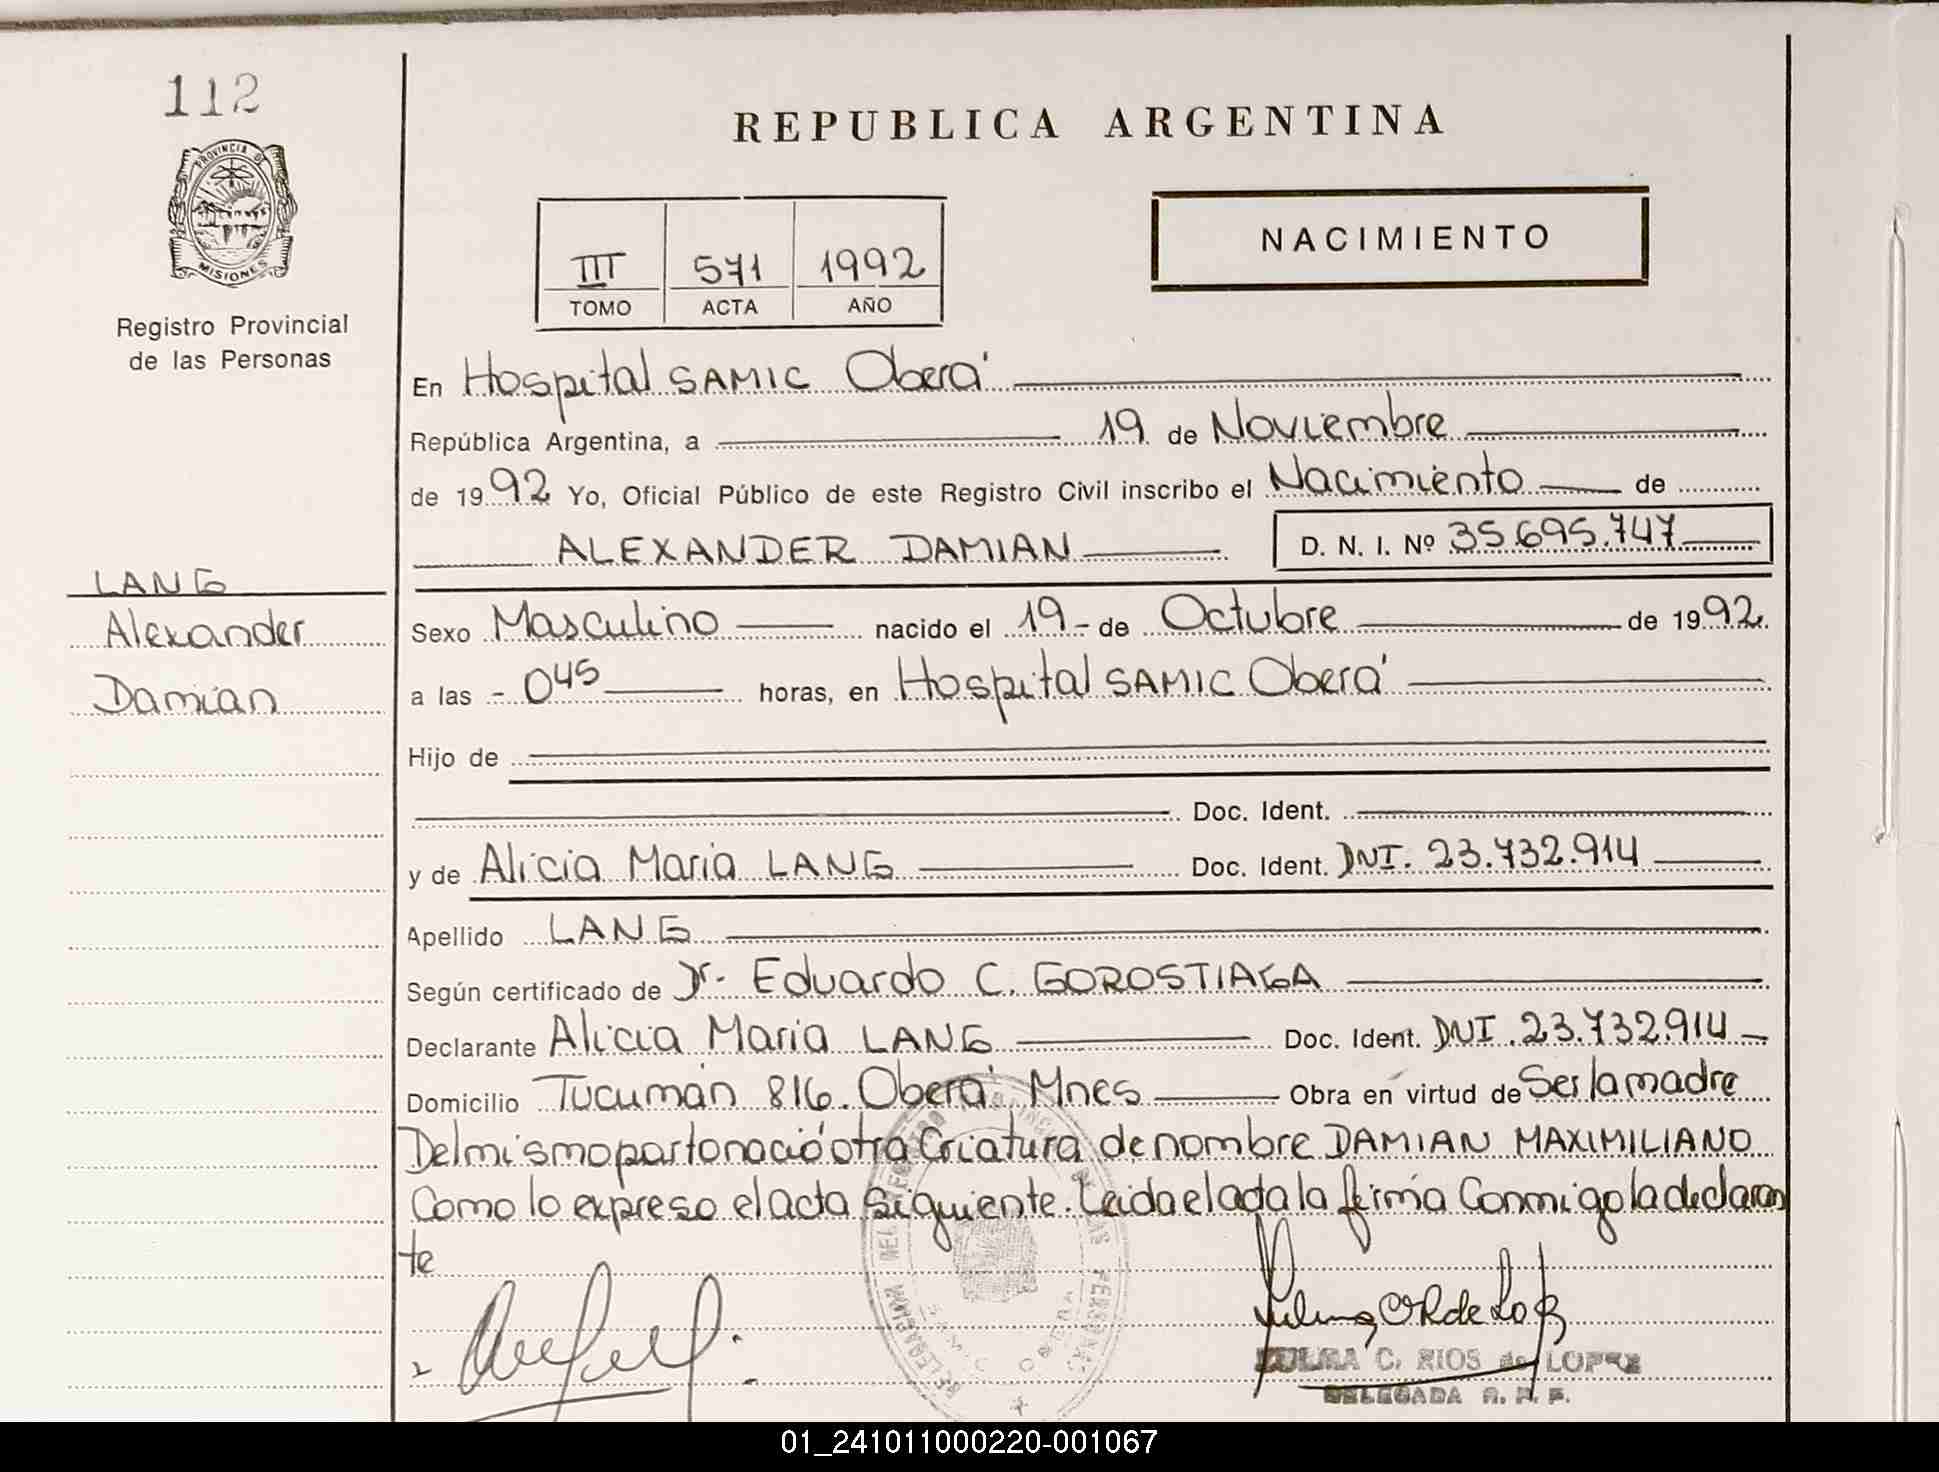 112
REPUBLICA ARGENTINA
PROVINCIA DE
MISIONES
Registro Provincial
de las Personas
NACIMIENTO
III 571 1992
TOMO ACTA AÑO
En Hospital SAMIC Oberá
República Argentina, a 19 de Noviembre
de 1992 Yo, Oficial Público de este Registro Civil inscribo el Nacimiento de
ALEXANDER DAMIAN D. N. I. Nº 35.695.747
LANG
Alexander
Damian
Sexo Masculino nacido el 19 - de Octubre de 1992.
a las - 0 45 horas, en Hospital SAMIC Oberá
Hijo de
Doc. Ident.
y de Alicia Maria LANG Doc. Ident. DNI. 23.732.914
Apellido LANG
Según certificado de Dr. Eduardo C. GOROSTIAGA
Declarante Alicia Maria LANG Doc. Ident. DNI. 23.732.914 -
Domicilio Tucumán 816. Oberá Mnes Obra en virtud de Ser la madre
Del mismo parto nació otra Criatura de nombre DAMIAN MAXIMILIANO
Como lo expresa el acta siguiente. Leida el acta la firma Conmigo la declaran
te
DELEGACION DEL REGISTRO PROVINCIAL DE LAS PERSONAS
SAMIC OBERA
ZULMA C. RIOS de LOPEZ
DELEGADA R. P. P.
01_241011000220-001067